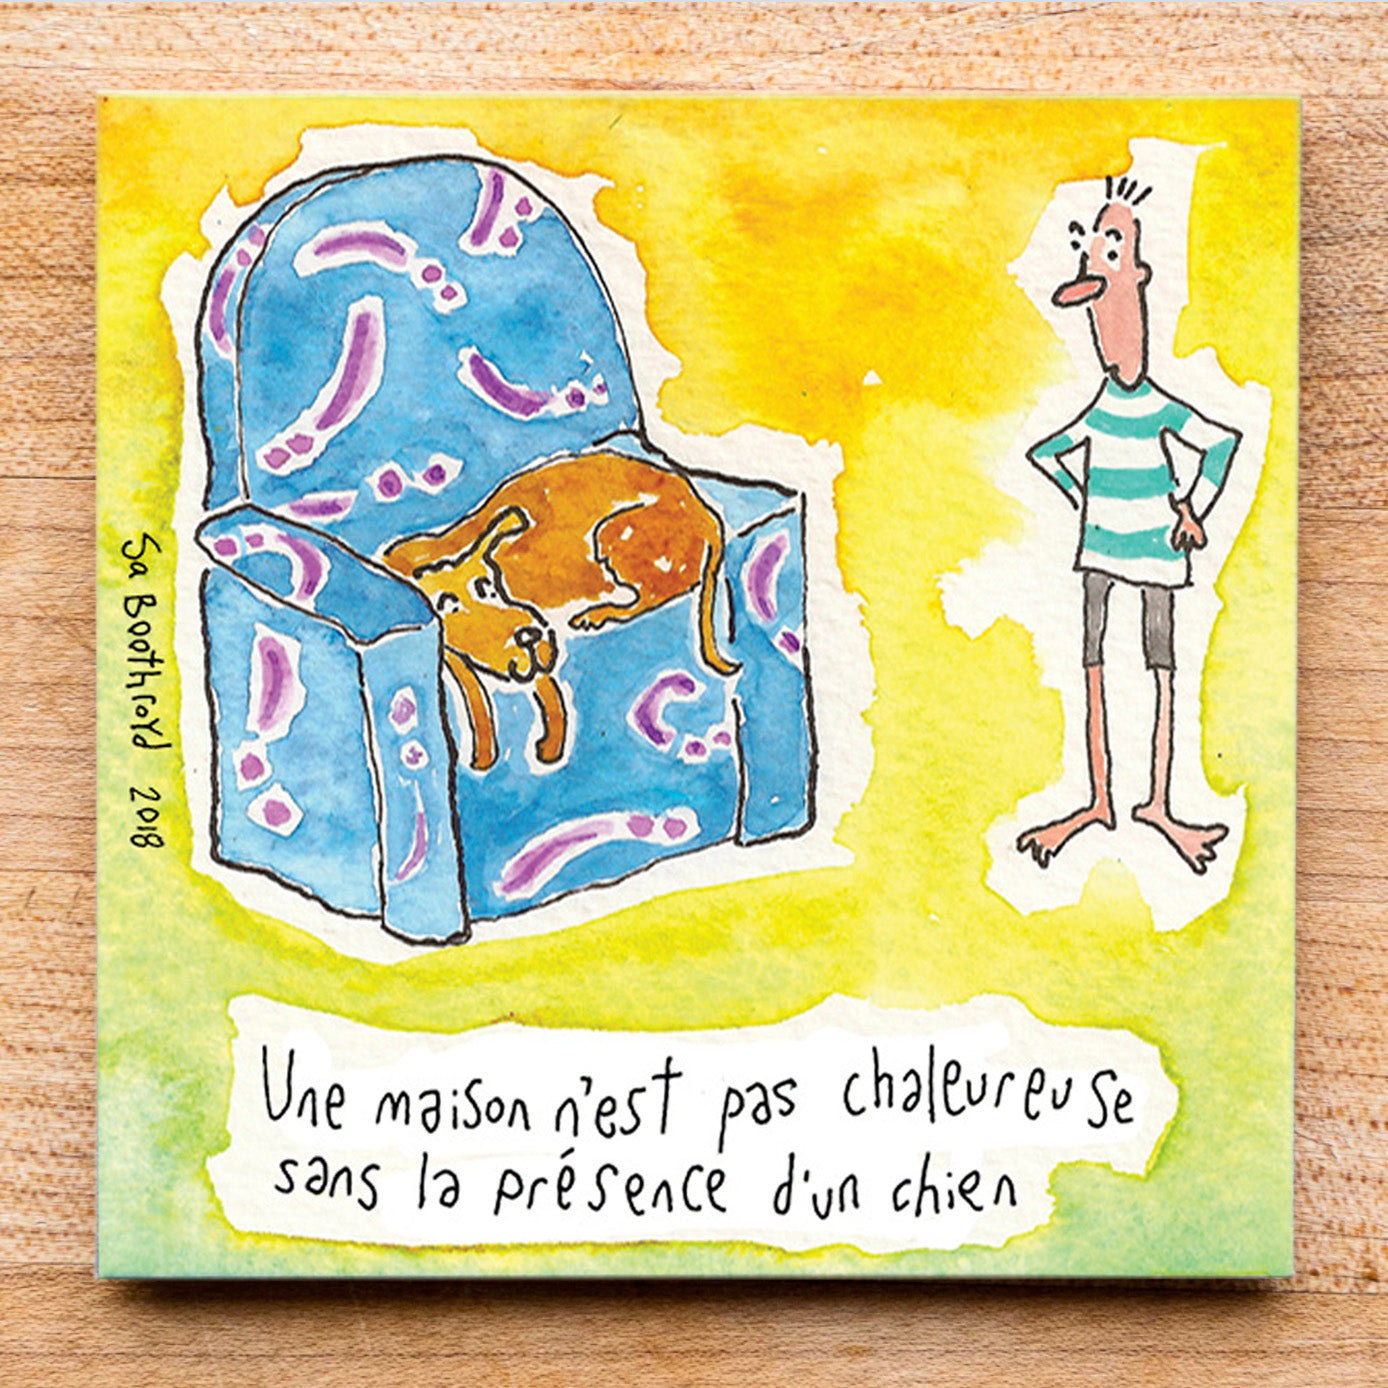 Sa Boothroyd 2018
Une maison n'est pas chaleureuse
sans la présence d'un chien